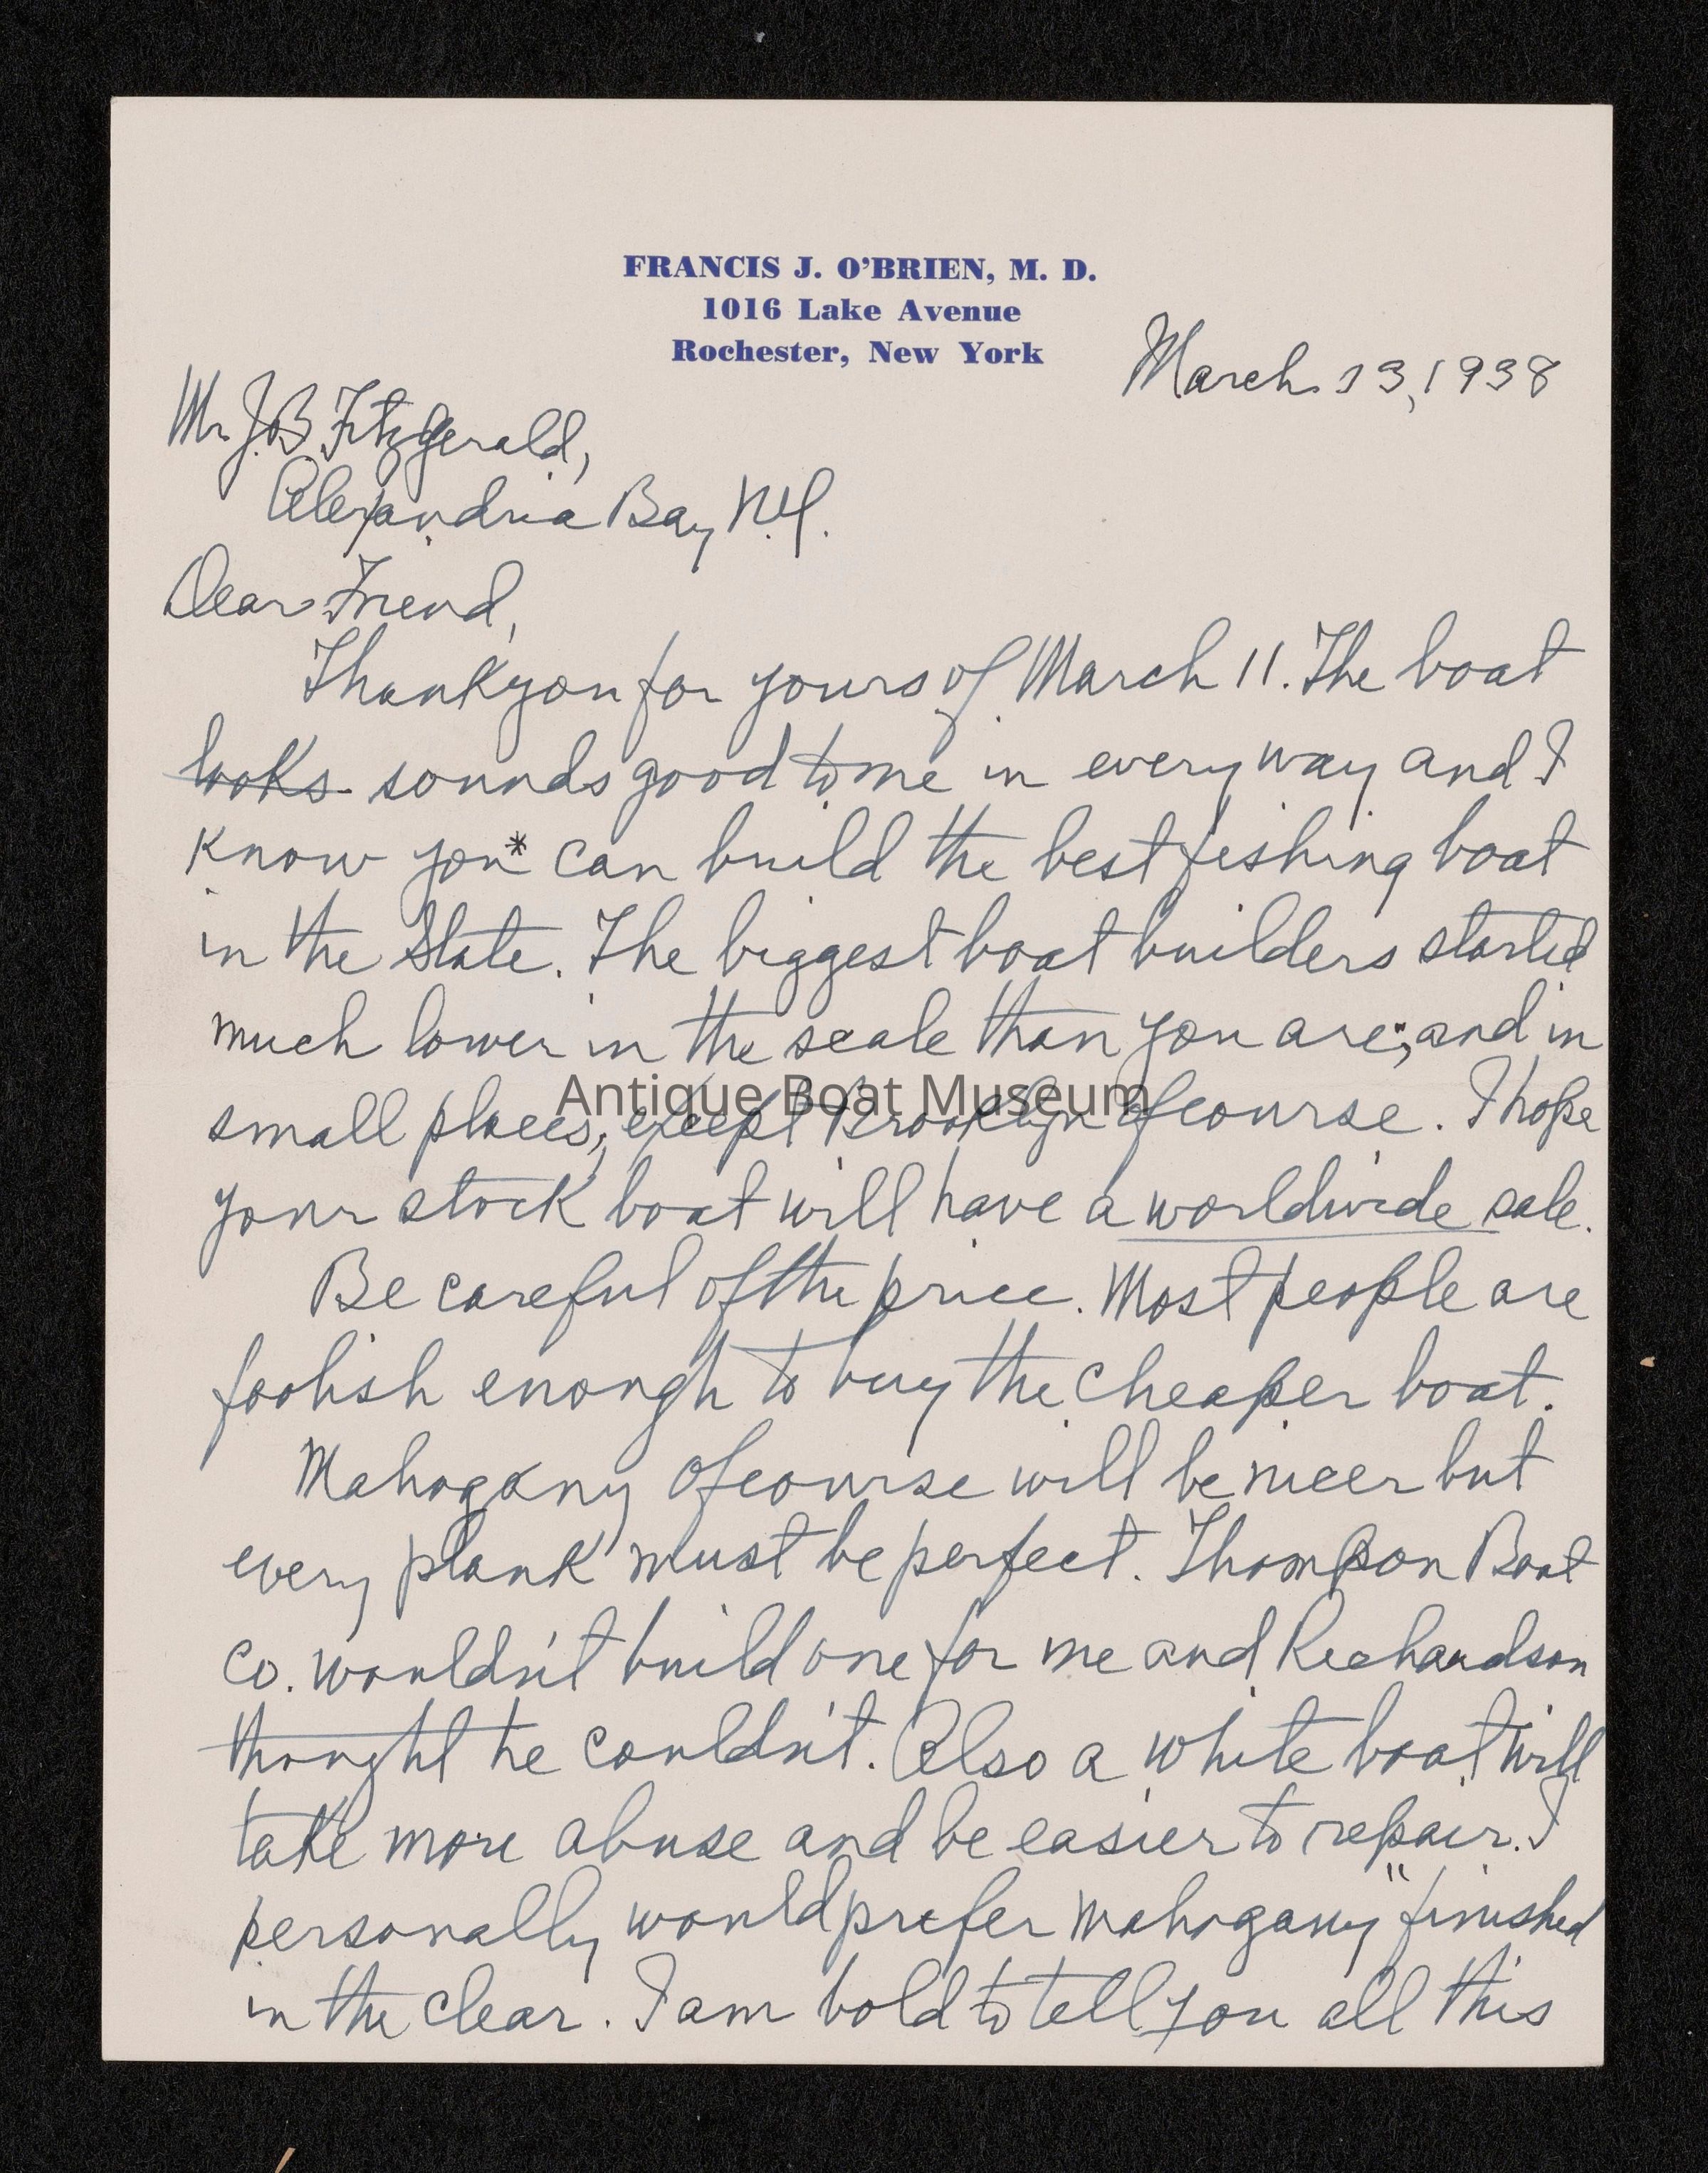 FRANCIS J. O'BRIEN, M. D.
1016 Lake Avenue
Rochester, New York
March 13, 1938
Mr. J.B Fitzgerald,
Alexandria Bay N.Y.
Dear Friend,
Thank you for yours of March 11. The boat
looks sounds good to me in every way and I
know you* can build the best fishing boat
in the State. The biggest boat builders started
much lower in the scale than you are, and in
small places, except Brooklyn of course. I hope
Antique Boat Museum
your stock boat will have a worldwide sale.
Be careful of the price. Most people are
foolish enough to buy the cheaper boat.
Mahogany of course will be nicer but
every plank must be perfect. Thompson Boat
Co. wouldn't build one for me and Richardson
thought he couldn't. Also a white boat will
take more abuse and be easier to repair. I
personally would prefer mahogany "finished
in the clear. I am bold to tell you all this